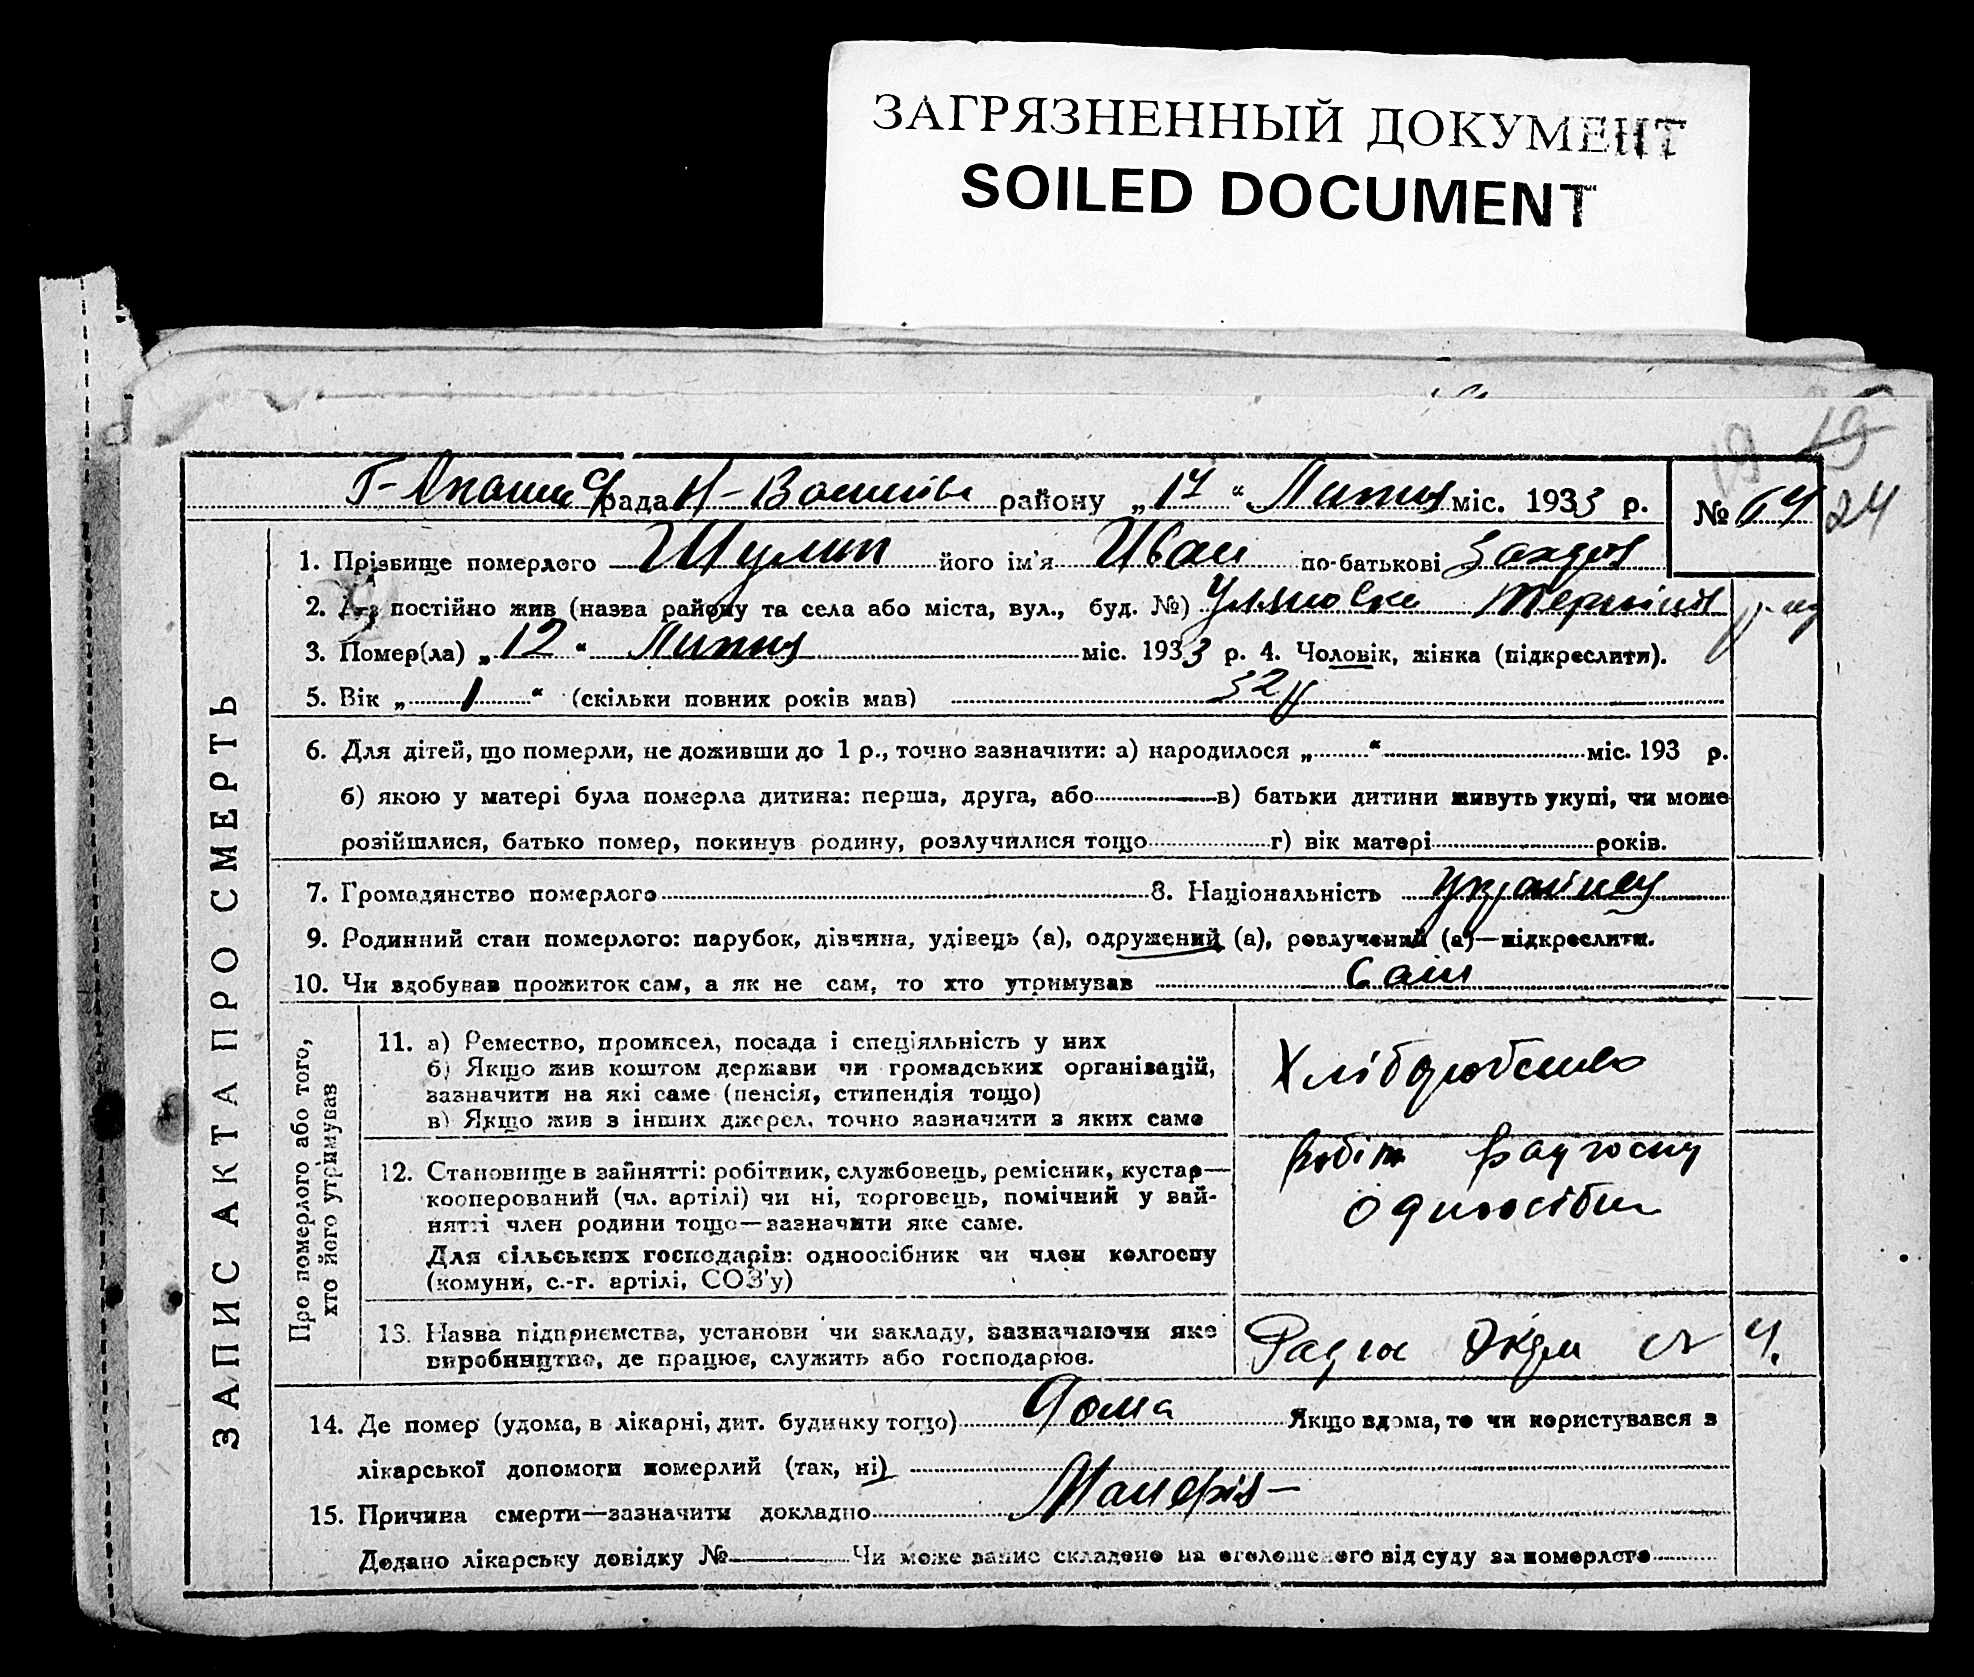 ЗАГРЯЗНЕННЫЙ ДОКУМЕНТ
SOILED DOCUMENT
19 19
рада району „17“ Липня міс. 1933 р. № 64 24
1. Прізвище померлого його ім'я Иван по-батькові
2. Де постійно жив (назва району та села або міста, вул., буд. №)
3. Помер(ла) „12“ Липня міс. 1933 р. 4. Чоловік, жінка (підкреслити).
5. Вік „1“ (скільки повних років мав) 32
6. Для дітей, що померли, не доживши до 1 р., точно зазначити: а) народилося „ “ міс. 193 р.
б) якою у матері була померла дитина: перша, друга, або в) батьки дитини живуть укупі, чи може
розійшлися, батько помер, покинув родину, розлучилися тощо г) вік матері років.
7. Громадянство померлого 8. Національність українец
9. Родинний стан померлого: парубок, дівчина, удівець (а), одружений (а), розлучений (а)—підкреслити.
10. Чи здобував прожиток сам, а як не сам, то хто утримував Сам
ЗАПИС АКТА ПРО СМЕРТЬ
Про померлого або того,
хто його утримував
11. а) Ремество, промисел, посада і спеціяльність у них
б) Якщо жив коштом держави чи громадських організацій,
зазначити на які саме (пенсія, стипендія тощо)
в) Якщо жив з інших джерел, точно зазначити з яких саме
12. Становище в зайнятті: робітник, службовець, ремісник, кустар—
кооперований (чл. артілі) чи ні, торговець, помічний у зай-
нятті член родини тощо—зазначити яке саме.
Для сільських господарів: одноосібник чи член колгоспу
(комуни, с.-г. артілі, СОЗ'у)
Робіт Радгоспу
13. Назва підприємства, установи чи закладу, зазначаючи яке
виробництво, де працює, служить або господарює.
14. Де помер (удома, в лікарні, дит. будинку тощо) Дома Якщо вдома, то чи користувався з
лікарської допомоги померлий (так, ні)
15. Причина смерти—зазначити докладно Малерія
Додано лікарську довідку № Чи може запис складено на оголошеного від суду за померлого